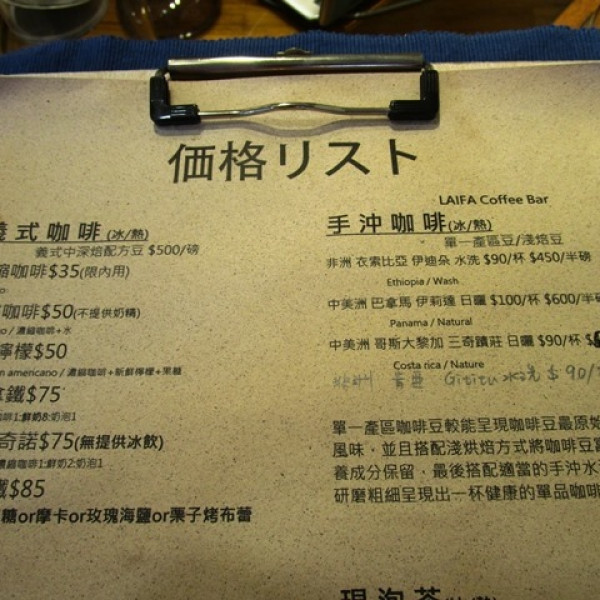 価格リスト
LAIFA Coffee Bar
義式咖啡(冰/熱)
義式中深焙配方豆 $500/磅
縮咖啡$35(限內用)
咖啡$50(不提供奶精)
o / 濃縮咖啡+水
檸檬$50
n americano / 濃縮咖啡+新鮮檸檬+果糖
拿鐵$75
咖啡1:鮮奶8:奶泡1
奇諾$75(無提供冰飲)
濃縮咖啡1:鮮奶2:奶泡1
鐵$85
糖or摩卡or玫瑰海鹽or栗子烤布蕾
手沖咖啡(冰/熱)
單一產區豆/淺焙豆
非洲 衣索比亞 伊迪朵 水洗 $90/杯 $450/半磅
Ethiopia / Wash
中美洲 巴拿馬 伊莉達 日曬 $100/杯 $600/半磅
Panama / Natural
中美洲 哥斯大黎加 三奇蹟莊 日曬 $90/杯
Costa rica / Nature
非洲 肯亞 Gititu 水洗 $90/
單一產區咖啡豆較能呈現咖啡豆最原始
風味，並且搭配淺烘焙方式將咖啡豆富
養成分保留，最後搭配適當的手沖水
研磨粗細呈現出一杯健康的單品咖啡
現泡茶